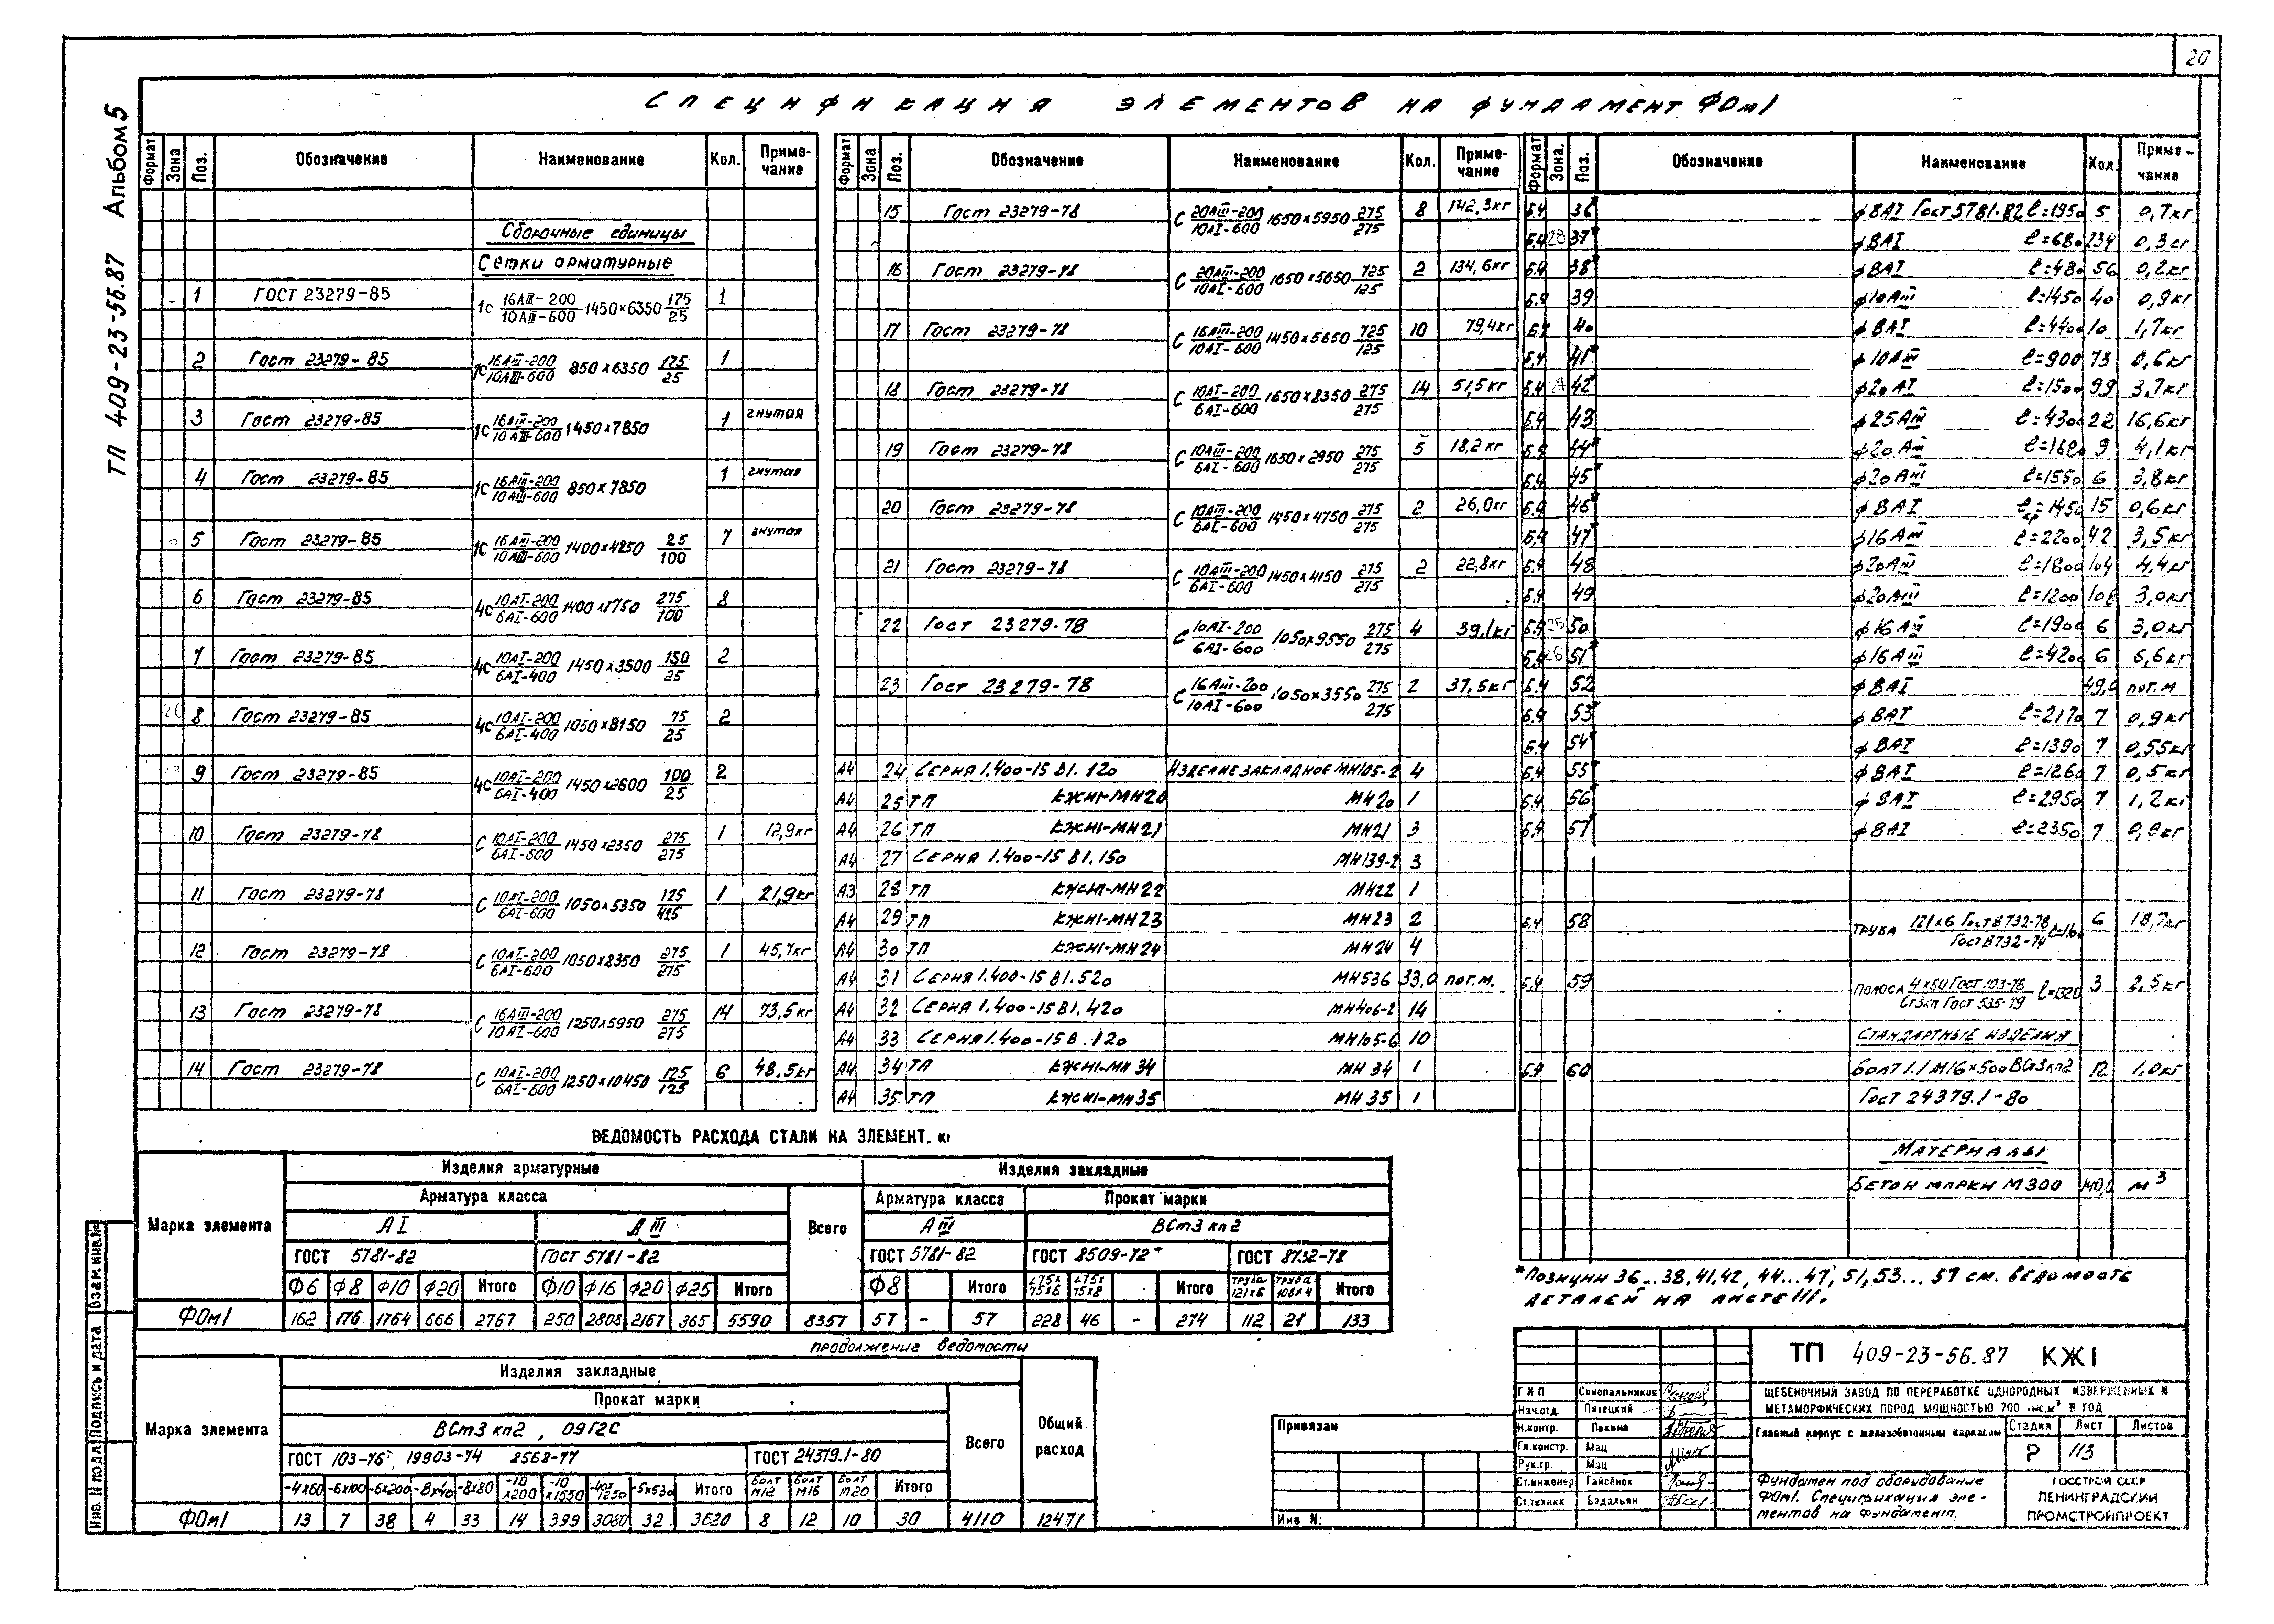 20
Альбом 5
ТП 409-23-56.87
Спецификация элементов на фундамент ФОм1
Формат Зона Поз. Обозначение Наименование Кол. Примечание
Сборочные единицы
Сетки арматурные
1 ГОСТ 23279-85 1С 16АIII-200/10АIII-600 1450×6350 175/25 1
2 Гост 23279-85 1С 16АIII-200/10АIII-600 850×6350 175/25 1
3 Гост 23279-85 1С 16АIII-200/10АIII-600 1450×7850 1 гнутая
4 Гост 23279-85 1С 16АIII-200/10АIII-600 850×7850 1 гнутая
5 Гост 23279-85 1С 16АIII-200/10АIII-600 1400×4250 25/100 7 гнутая
6 Гост 23279-85 4С 10АI-200/6АI-600 1400×1750 275/100 8
7 Гост 23279-85 4С 10АI-200/6АI-400 1450×3500 150/25 2
8 Гост 23279-85 4С 10АI-200/6АI-400 1050×8150 75/25 2
9 Гост 23279-85 4С 10АI-200/6АI-400 1450×2600 100/25 2
10 Гост 23279-78 С 10АI-200/6АI-600 1450×2350 275/275 1 12,9кг
11 Гост 23279-78 С 10АI-200/6АI-600 1050×5350 1 21,9кг
12 Гост 23279-78 С 10АI-200/6АI-600 1050×8350 275/275 1 45,7кг
13 Гост 23279-78 С 16АIII-200/10АI-600 1250×5950 275/275 14 73,5кг
14 Гост 23279-78 С 10АI-200/6АI-600 1250×10450 125/125 6 48.5кг
Формат Зона Поз. Обозначение Наименование Кол. Примечание
15 Гост 23279-78 С 20АIII-200/10АI-600 1650×5950 275/275 8 142,3кг
16 Гост 23279-78 С 20АIII-200/10АI-600 1650×5650 125/125 2 134,6кг
17 Гост 23279-78 С 16АIII-200/10АI-600 1450×5650 125/125 10 79,4кг
18 Гост 23279-78 С 10АI-200/6АI-600 1650×8350 275/275 14 51,5кг
19 Гост 23279-78 С 10АIII-200/6АI-600 1650×2950 275/275 5 18,2кг
20 Гост 23279-78 С 10АIII-200/6АI-600 1450×4750 275/275 2 26,0кг
21 Гост 23279-78 С 10АIII-200/6АI-600 1450×4150 275/275 2 22,8кг
22 Гост 23279-78 С 10АI-200/6АI-600 1050×9550 275/275 4 39,1кг
23 Гост 23279-78 С 16АIII-200/10АI-600 1050×3550 275/275 2 37,5кг
А4 24 Серия 1.400-15 В1.120 Изделие закладное МН105-2 4
А4 25 ТП КЖН1-МН20 МН20 1
А4 26 ТП КЖН1-МН21 МН21 3
А4 27 Серия 1.400-15 В1.150 МН139-2 3
А3 28 ТП КЖН1-МН22 МН22 1
А4 29 ТП КЖН1-МН23 МН23 2
А4 30 ТП КЖН1-МН24 МН24 4
А4 31 Серия 1.400-15 В1.520 МН536 33,0 пог.м.
А4 32 Серия 1.400-15 В1.420 МН406-2 14
А4 33 Серия 1.400-15 В .120 МН105-6 10
А4 34 ТП КЖН1-МН34 МН34 1
А4 35 ТП КЖН1-МН35 МН35 1
Формат Зона. Поз. Обозначение Наименование Кол. Примечание
Б.Ч 36* ф8АI Гост 5781-82 ℓ=1950 5 0,7кг
Б.Ч 28 37* ф8АI ℓ=680 234 0,3кг
Б.Ч 38* ф8АI ℓ=480 56 0,2кг
Б.Ч 39 ф10АIII ℓ=1450 40 0,9кг
Б.Ч 40 ф8АI ℓ=4400 10 1,7кг
Б.Ч 41* ф10АIII ℓ=900 73 0,6кг
Б.Ч 42* ф20АI ℓ=1500 99 3,7кг
Б.Ч 43 ф25АIII ℓ=4300 22 16,6кг
Б.Ч 44* ф20АIII ℓ=1680 9 4,1кг
Б.Ч 45* ф20АIII ℓ=1550 6 3,8кг
Б.Ч 46* ф8АI ℓср=1450 15 0,6кг
Б.Ч 47* ф16АIII ℓ=2200 42 3,5кг
Б.Ч 48 ф20АIII ℓ=1800 104 4,4кг
Б.Ч 49 ф20АIII ℓ=1200 108 3,0кг
Б.Ч 25 50 ф16АIII ℓ=1900 6 3,0кг
Б.Ч 26 51* ф16АIII ℓ=4200 6 6,6кг
Б.Ч 52 ф8АI 49,0 пог.м
Б.Ч 53* ф8АI ℓ=2170 7 0,9кг
Б.Ч 54* ф8АI ℓ=1390 7 0,55кг
Б.Ч 55* ф8АI ℓ=1260 7 0,5кг
Б.Ч 56* ф8АI ℓ=2950 7 1,2кг
Б.Ч 57* ф8АI ℓ=2350 7 0,9кг
Б.Ч 58 Труба 121×6 Гост 8732-78/Гост 8732-74 6 18,7кг
Б.Ч 59 Полоса 4×60 Гост 103-76/Ст3кп Гост 535-79 ℓ=1320 3 2,5кг
Стандартные изделия
Б.Ч 60 Болт 1.1 М16×500 ВСт3кп2 12 1,0кг
Гост 24379.1-80
Материалы
Бетон марки М300 140,0 м³
*Позиции 36...38,41,42, 44...47, 51, 53... 57 см. ведомость
деталей на листе 111.
ВЕДОМОСТЬ РАСХОДА СТАЛИ НА ЭЛЕМЕНТ. кг
Марка элемента Изделия арматурные Изделия закладные
Арматура класса Всего Арматура класса Прокат марки
АI АIII АIII ВСт3кп2
ГОСТ 5781-82 ГОСТ 5781-82 ГОСТ 5781-82 ГОСТ 8509-72* ГОСТ 8732-78
Ф6 Ф8 Ф10 Ф20 Итого Ф10 Ф16 Ф20 Ф25 Итого Ф8 Итого L75×75×6 L75×75×8 - Итого Труба 121×6 Труба 108×4 Итого
ФОм1 162 176 1764 666 2767 250 2808 2167 365 5590 8357 57 - 57 228 46 - 274 112 21 133
продолжение ведомости
Марка элемента Изделия закладные Общий расход
Прокат марки Всего
ВСт3кп2, 09Г2С
ГОСТ 103-76*, 19903-74 8568-77 ГОСТ 24379.1-80
-4×60 -6×100 -6×200 -8×40 -8×80 -10×200 -10×1550 -40×1250 -5×530 Итого Болт М12 Болт М16 Болт М20 Итого
ФОм1 13 7 38 4 33 14 399 3080 32 3620 8 12 10 30 4110 12471
Привязан
Инв N:
ТП 409-23-56.87 КЖ1
ЩЕБЕНОЧНЫЙ ЗАВОД ПО ПЕРЕРАБОТКЕ ОДНОРОДНЫХ ИЗВЕРЖЕННЫХ И
МЕТАМОРФИЧЕСКИХ ПОРОД МОЩНОСТЬЮ 700 тыс.м³ В ГОД
ГИП Синопальников
Нач.отд. Пятецкий
Н.контр. Пекина
Гл.констр. Мац
Рук.гр. Мац
Ст.инженер Гайсёнок
Ст.техник Бадальян
Главный корпус с железобетонным каркасом
Стадия Лист Листов
Р 113
Фундамен под оборудование
ФОм1. Спецификация эле-
ментов на фундамент.
ГОССТРОЙ СССР
ЛЕНИНГРАДСКИЙ
ПРОМСТРОЙПРОЕКТ
Инв. N подл Подпись и дата Взам.инв.№